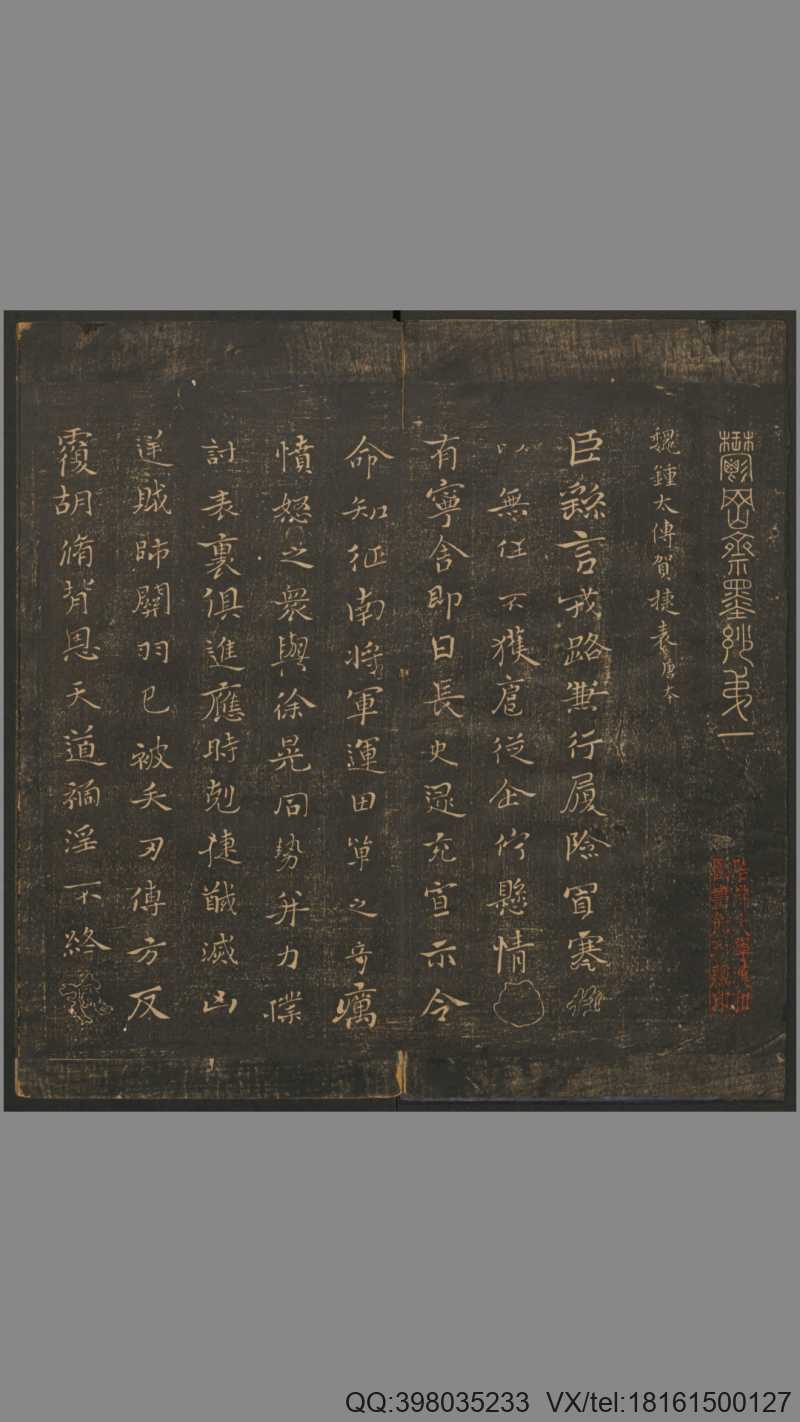 鬱岡齋墨妙第一
魏鍾太傅賀捷表唐本
臣繇言戎路兼行履險冒寒
以無任不獲扈從企佇懸情
有寧舍即日長史逯充宣示令
命知征南將軍運田單之奇厲
憤怒之衆與徐晃同勢并力㩸
討表裏俱進應時剋捷馘滅凶
逆賊帥關羽已被矢刃傅方反
覆胡脩背恩天道禍淫不終
QQ:398035233 VX/tel:18161500127